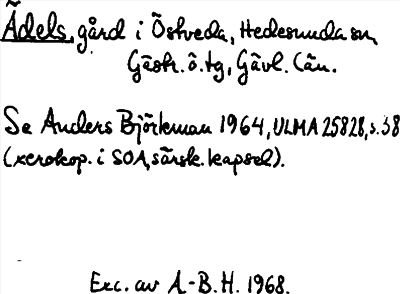 Ädels, gård i Östveda, Hedesunda sn,
Gästr. ö. tg, Gävl. län.
Se Anders Björkman 1964, ULMA 25828, s. 38
(xerokop. i SOA, särsk. kapsel).
Exc. av A.-B. H. 1968.